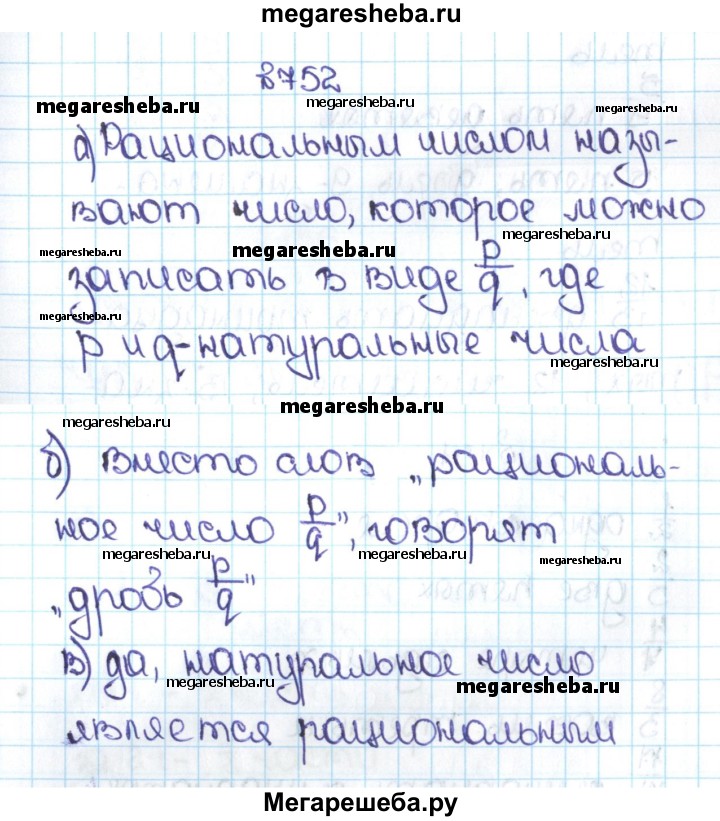 megaresheba.ru
8752
megaresheba.ru megaresheba.ru megaresheba.ru
а) Рациональным числом назы-
вают число, которое можно
megaresheba.ru megaresheba.ru megaresheba.ru
записать в виде p/q, где
megaresheba.ru
p и q-натуральные числа
megaresheba.ru
megaresheba.ru megaresheba.ru
б) вместо слов „рациональ-
ное число p/q”, говорят
megaresheba.ru megaresheba.ru megaresheba.ru
„дробь p/q”
в) да, натуральное число
megaresheba.ru megaresheba.ru
является рациональным
Мегарешеба.ру